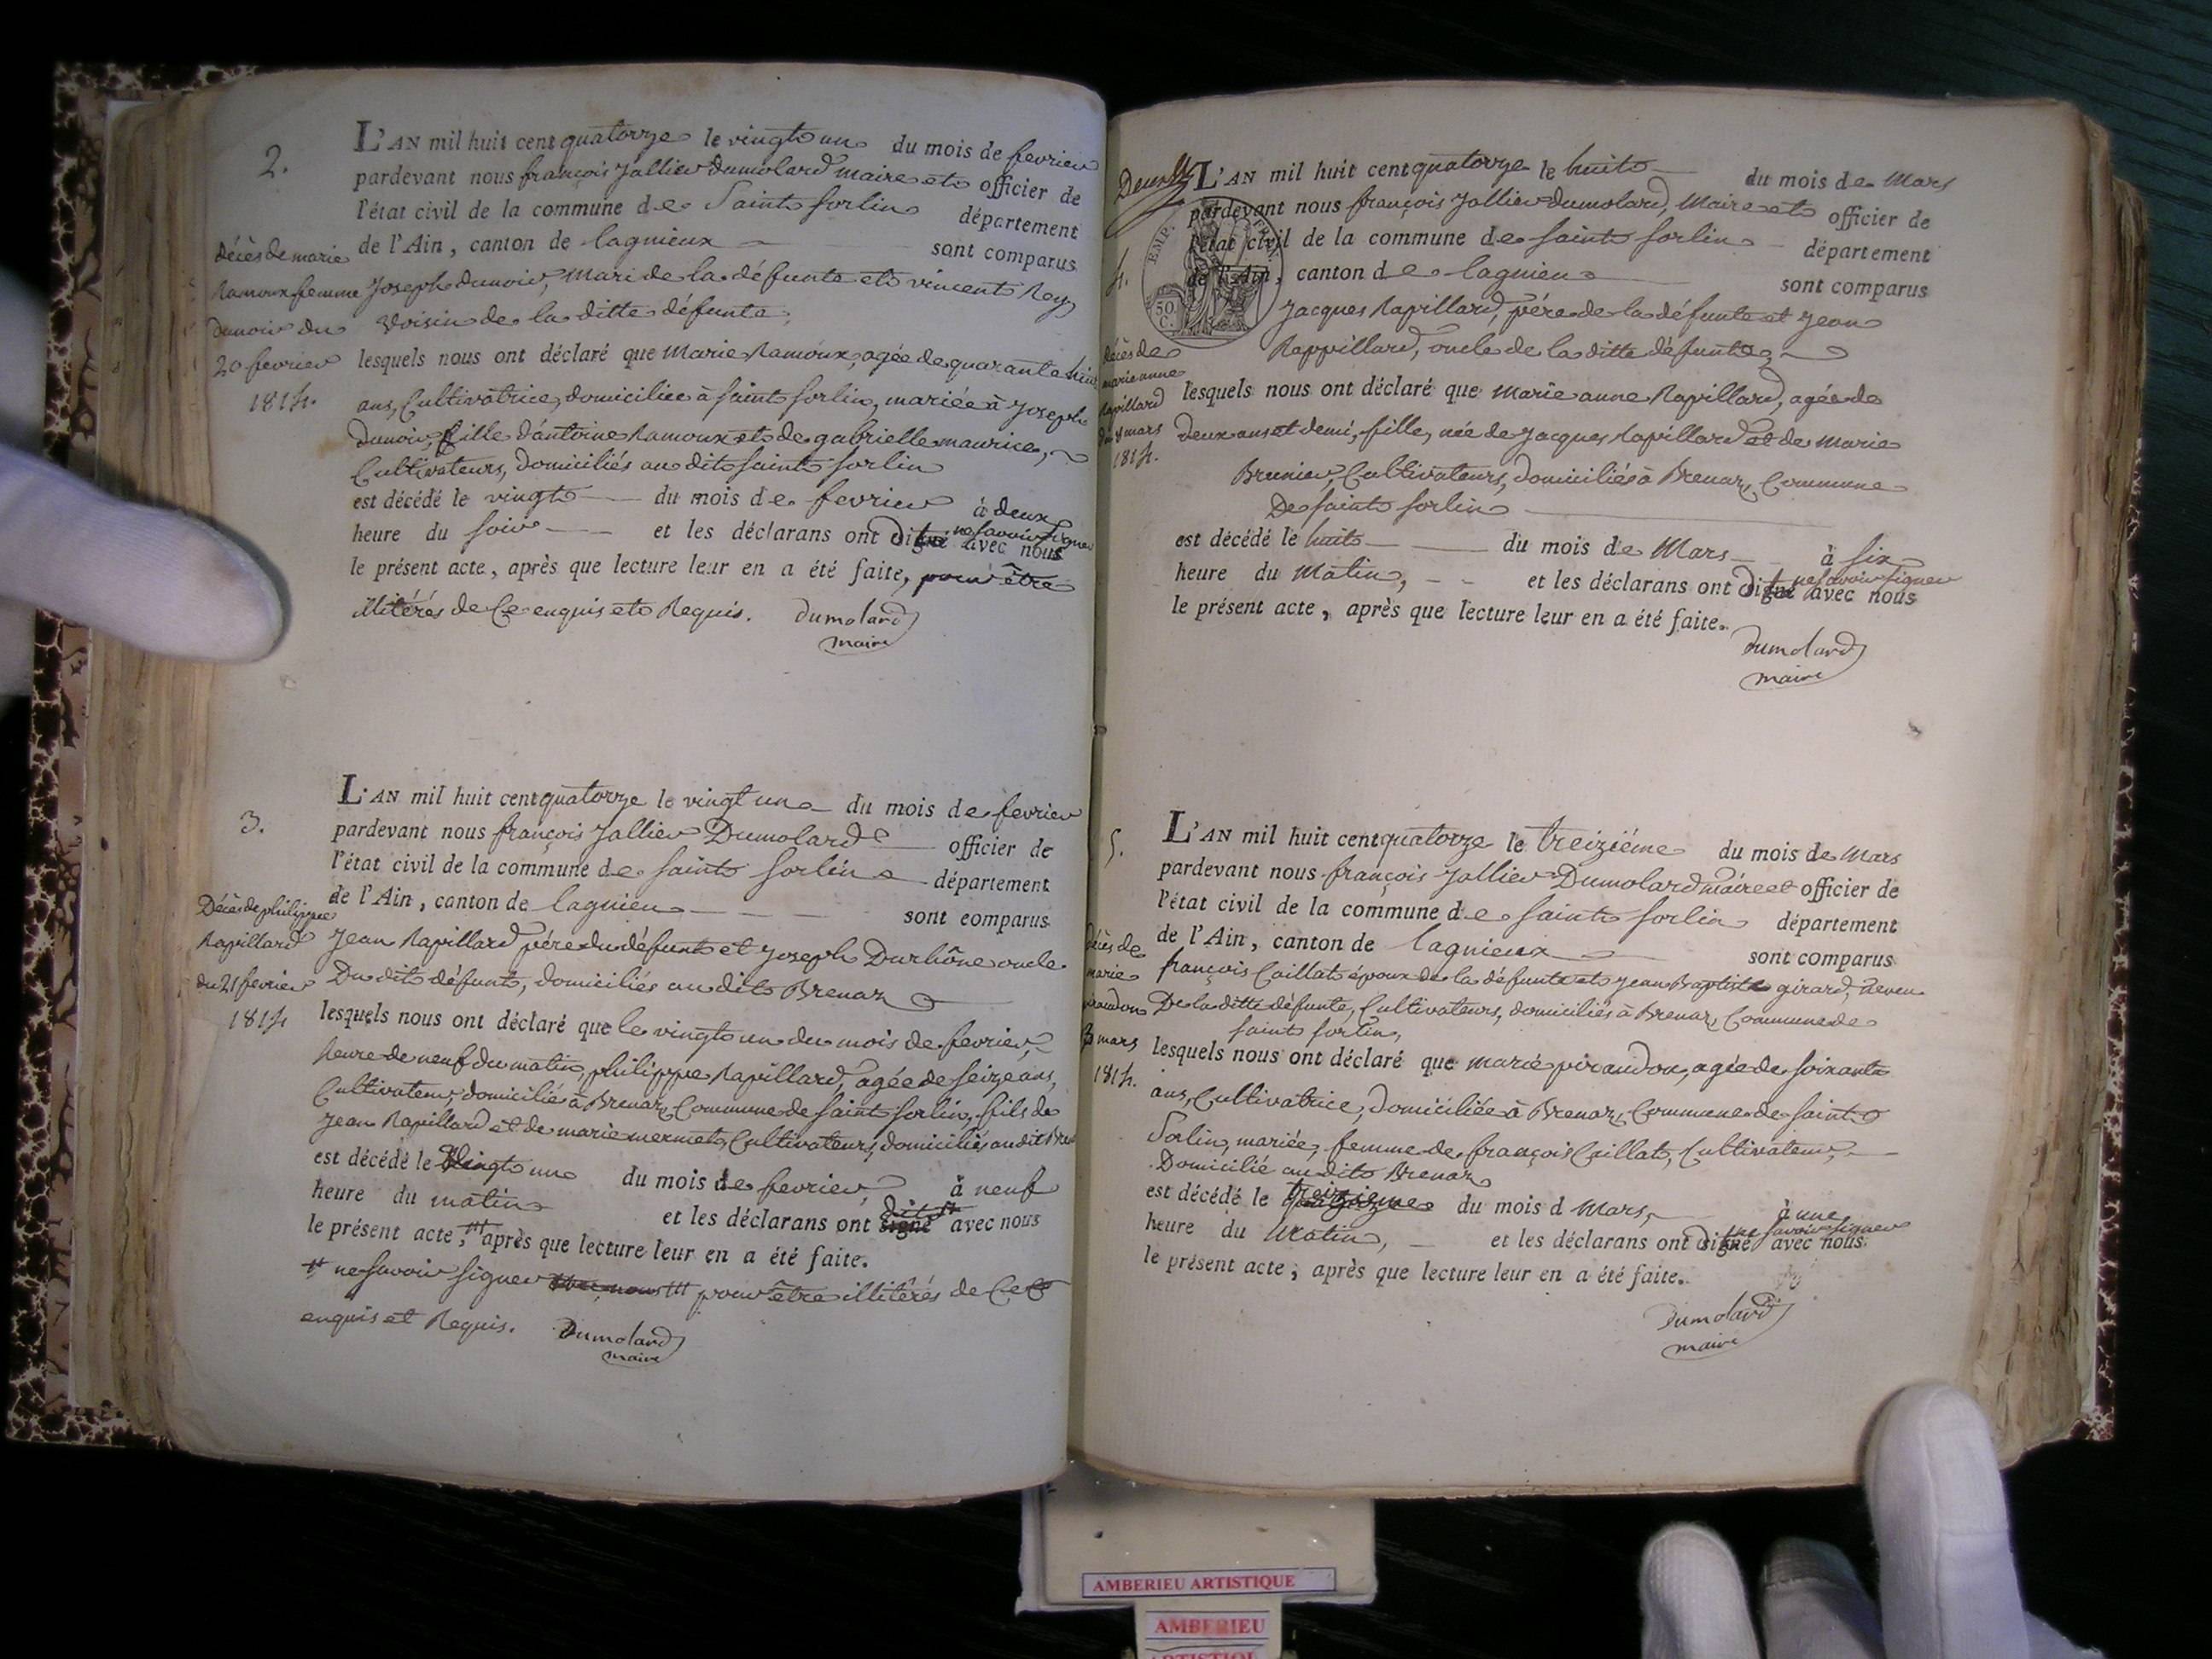 2.
L'AN mil huit cent quatorze le vingt un du mois de fevrier
pardevant nous françois Jallier dumolard maire et officier de
l'état civil de la commune de Saint Sorlin département
de l'Ain, canton de lagnieux sont comparus
Joseph dunoir, mari de la défunte et vincent Rey
voisin de la ditte défunte,
lesquels nous ont déclaré que Marie Ramoux, agée de quarante
ans, Cultivatrice, domiciliée à saint sorlin, mariée à Joseph
dunoir, fille d'antoine Ramoux et de gabrielle maurice,
Cultivateurs, domiciliés au dit saint sorlin
est décédé le vingt du mois de fevrier à deux
heure du soir et les déclarans ont dit ne savoir signer avec nous
le présent acte, après que lecture leur en a été faite, pour être
illitérés de Ce enquis et Requis. Dumolard
maire
décès de marie
Ramoux femme
dunoir du
20 fevrier
1814.
3.
L'AN mil huit cent quatorze le vingt un du mois de fevrier
pardevant nous françois Jallier Dumolard officier de
l'état civil de la commune de saint sorlin département
de l'Ain, canton de lagnieu sont comparus
Jean Rapillard pére du défunt et Joseph Durhône oncle
Du dit défunt, domiciliés au dit Brenaz
lesquels nous ont déclaré que le vingt un du mois de fevrier,
heure de neuf du matin, philippe Rapillard, agée de seize ans,
Cultivateur, domicilié à Brenaz, Commune de saint sorlin, fils de
Jean Rapillard et de marie mermet, Cultivateurs, domiciliés au dit Bre
est décédé le vingt un du mois de fevrier, à neuf
heure du matin et les déclarans ont dit signé avec nous
le présent acte, après que lecture leur en a été faite.
ne savoir signer avec nous pour être illitérés de Ce
enquis et Requis. Dumolard
maire
Décès de philippe
Rapillard
du 21 fevrier
1814
4.
L'AN mil huit cent quatorze le huit du mois de Mars
pardevant nous françois Jallier dumolard, Maire et officier de
l'état civil de la commune de saint sorlin département
de l'Ain, canton de lagnieu sont comparus
Jacques Rapillard, pére de la défunte et Jean
Rappillard, oncle de la ditte défunte,
lesquels nous ont déclaré que Marie anne Rapillard, agée de
deux ans et demi, fille, née de Jacques Rapillard et de Marie
Brunier, Cultivateurs, domiciliés à Brenaz, Commune
De saint sorlin
est décédé le huit du mois de Mars à six
heure du Matin, et les déclarans ont dit ne savoir signer avec nous
le présent acte, après que lecture leur en a été faite.
Dumolard
maire
EMP. FRAN.
50 C.
décès de
marie anne
Rapillard
du 8 mars
1814.
5.
L'AN mil huit cent quatorze le treiziéme du mois de Mars
pardevant nous françois Jallier Dumolard maire et officier de
l'état civil de la commune de saint sorlin département
de l'Ain, canton de lagnieux sont comparus
françois Caillat époux de la défunte et Jean Baptiste girard, neveu
De la ditte défunte, Cultivateurs, domiciliés à Brenaz, Commune de
saint sorlin,
lesquels nous ont déclaré que marie pirandon, agée de soixante
ans, Cultivatrice, domiciliée à Brenaz, Commune de saint
Sorlin, mariée, femme de françois Caillat, Cultivateur,
Domicilié au dit Brenaz
est décédé le treizieme du mois d Mars, à une
heure du Matin, et les déclarans ont dit ne savoir signer avec nous
le présent acte, après que lecture leur en a été faite.
Dumolard
maire
décès de
marie
pirandon
13 mars
1814.
AMBERIEU ARTISTIQUE
AMBERIEU
ARTISTIQUE